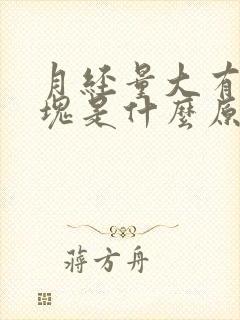 月经量大有
塊是什麼原
蒋方舟